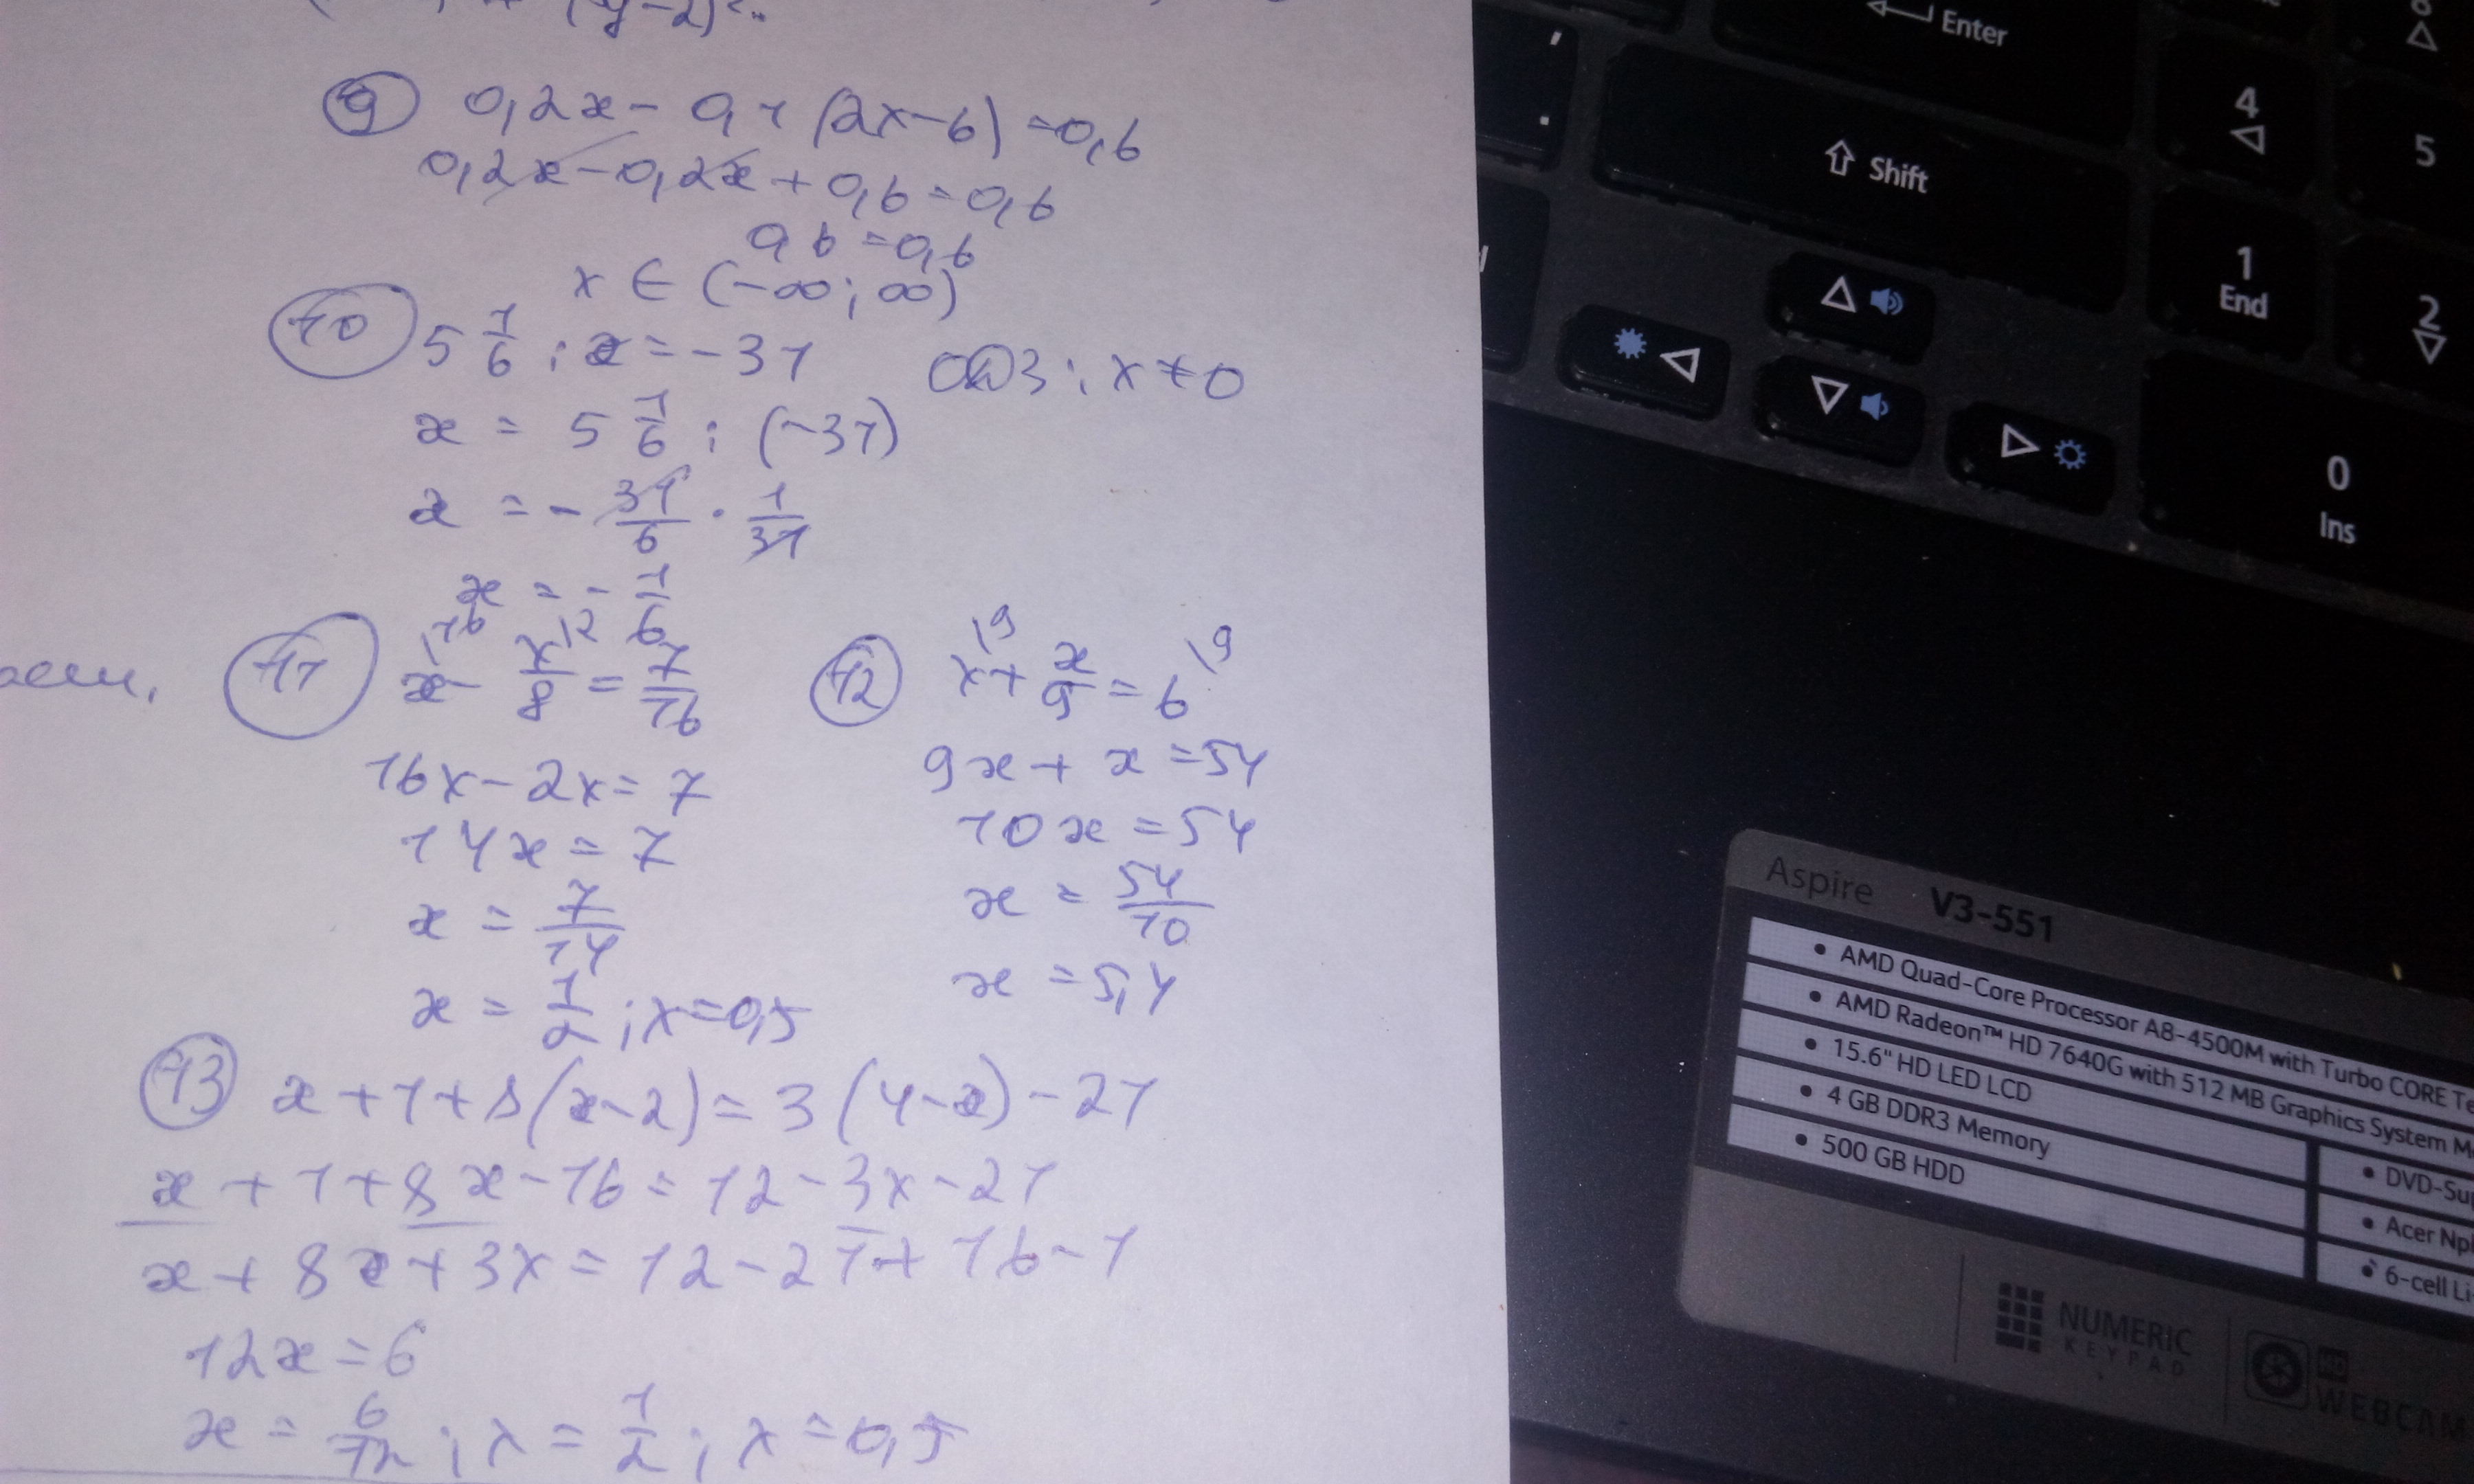 (y-2)²
⑨ 0,2x - 0,1 (2x-6) = 0,6
0,2x - 0,2x + 0,6 = 0,6
0,6 = 0,6
x ∈ (-∞; ∞)
⑩ 5 1/6 : x = -31 ОДЗ: x ≠ 0
x = 5 1/6 : (-31)
x = - 31/6 · 1/31
x = - 1/6
⑪ x\16 - x/8\2 = 7/16
16x - 2x = 7
14x = 7
x = 7/14
x = 1/2 ; x = 0,5
⑫ x\9 + x/9 = 6\9
9x + x = 54
10x = 54
x = 54/10
x = 5,4
⑬ x + 1 + 8(x-2) = 3(4-x) - 21
x + 1 + 8x - 16 = 12 - 3x - 21
x + 8x + 3x = 12 - 21 + 16 - 1
12x = 6
x = 6/12 ; x = 1/2 ; x = 0,5
Enter
Shift
4
5
1
End
2
0
Ins
Aspire V3-551
• AMD Quad-Core Processor A8-4500M with Turbo CORE Te
• AMD Radeon™ HD 7640G with 512 MB Graphics System M
• 15.6" HD LED LCD
• 4 GB DDR3 Memory
• 500 GB HDD
• DVD-Su
• Acer Np
• 6-cell Li
NUMERIC
KEYPAD
HD
WEBCAM